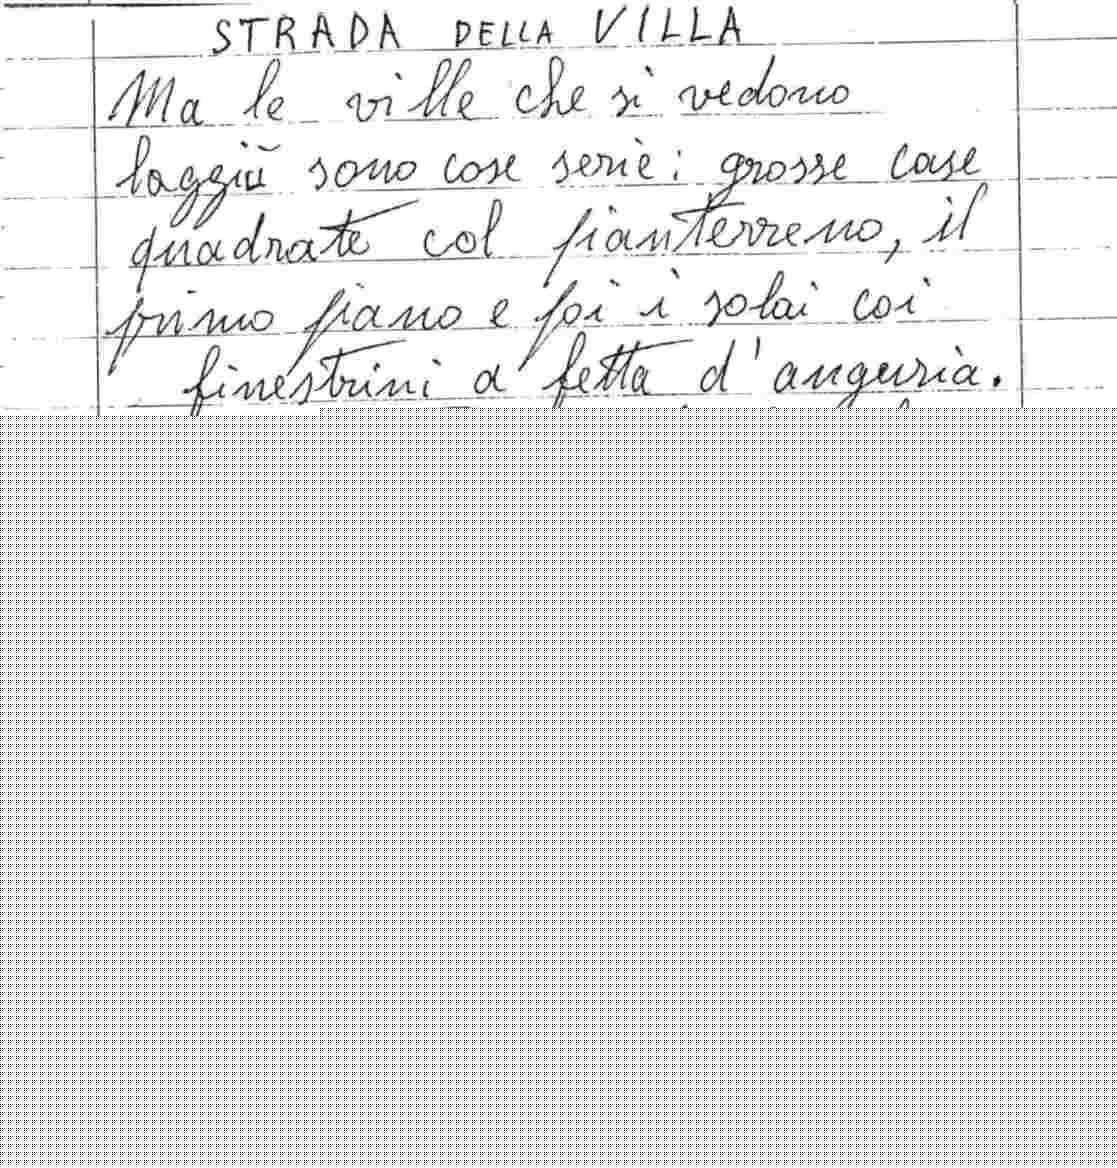 STRADA DELLA VILLA
Ma le ville che si vedono
laggiù sono cose serie: grosse case
quadrate col pianterreno, il
primo piano e poi i solai coi
finestrini a fetta d'anguria.